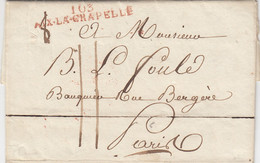 103
AIX-LA-CHAPELLE
A Monsieur
B. L. Fould
Banquier Rue Bergère
Paris